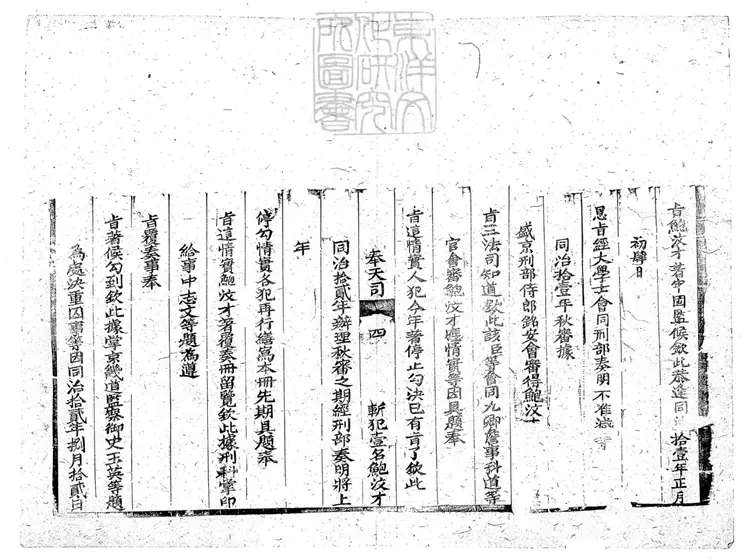 東洋文
化研究
所圖書
旨鮑汶才著牢固監候欽此恭逢同 拾壹年正月
初肆日
恩旨經大學士會同刑部奏明不准減等
同治拾壹年秋審據
盛京刑部侍郎銘安會審得鮑汶才
旨三法司知道欽此該臣等會同九卿詹事科道等
官會審鮑汶才應情實等因具題奉
旨這情實人犯今年著停止勾決已有旨了欽此
奉天司 四 斬犯壹名鮑汶才
同治拾貳年辦理秋審之期經刑部奏明將上
年
停勾情實各犯再行繕寫本冊先期具題奉
旨這情實鮑汶才著覆奏冊留覽欽此據刑科掌印
給事中志文等題為遵
旨覆奏事奉
旨著候勾到欽此據掌京畿道監察御史王英等題
為處決重囚事等因同治拾貳年捌月拾貳日